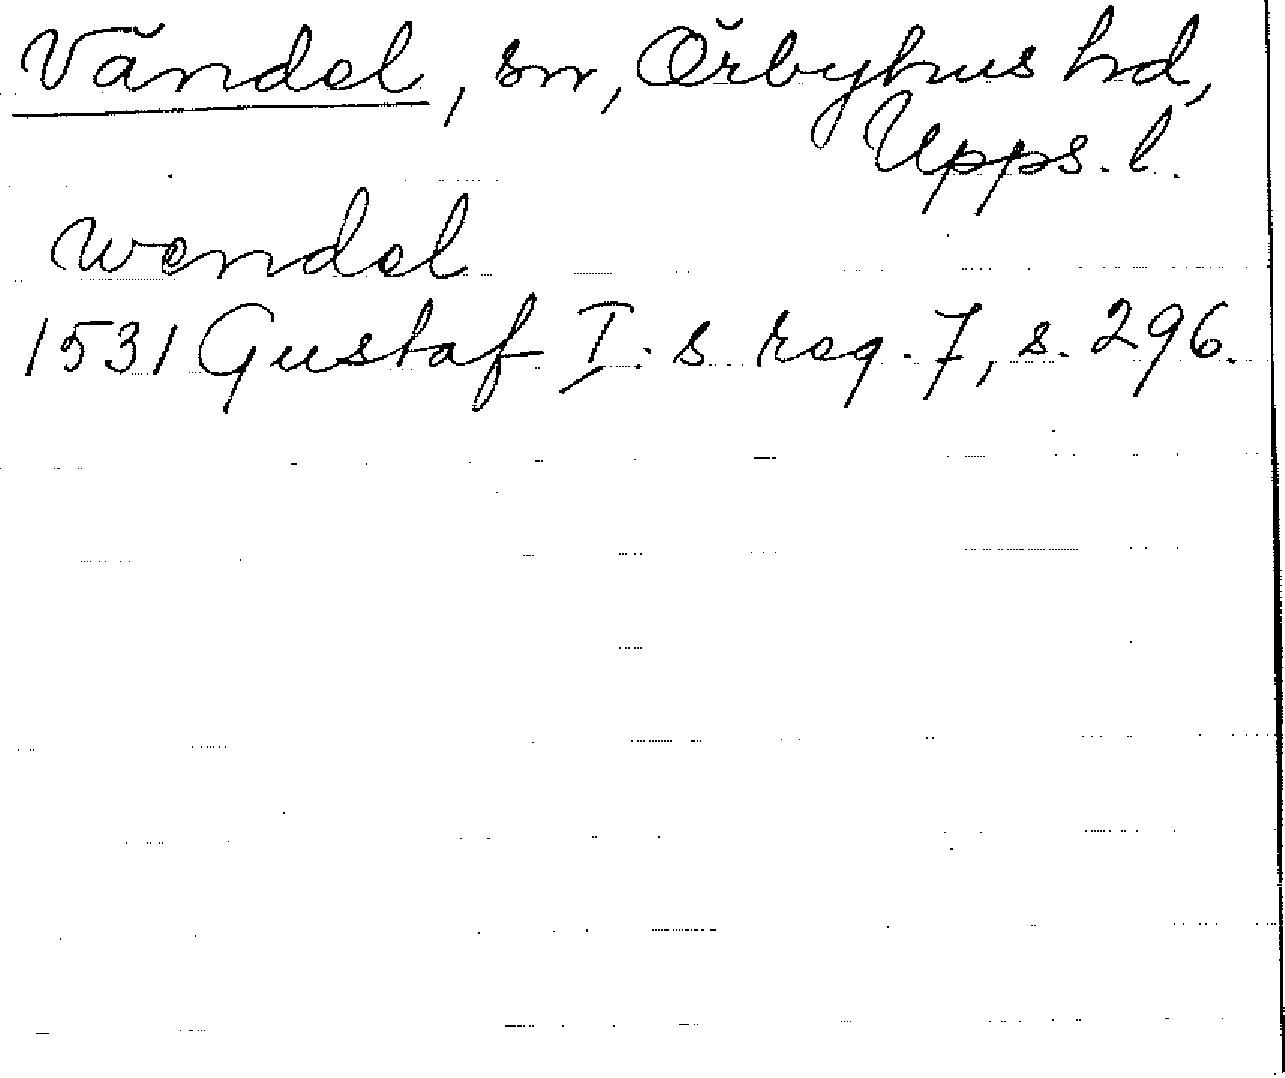 Vändel, sn, Örbyhus hd,
Upps. l.
Wendel
1531 Gustaf I. s reg. 7, s. 296.